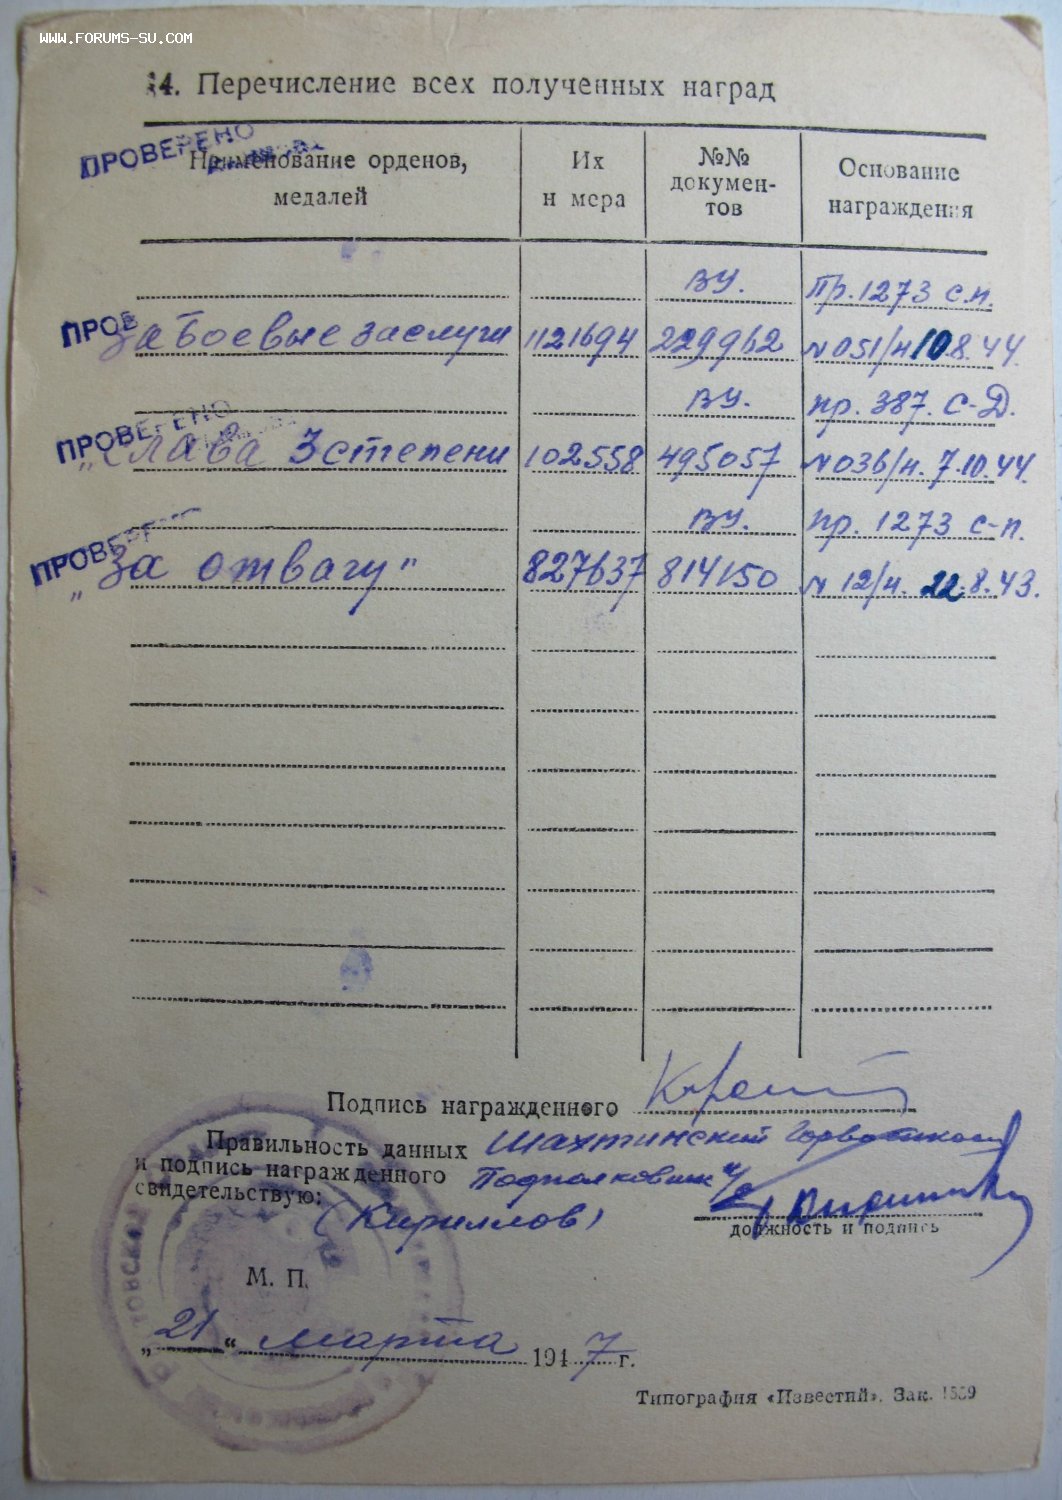 www.forums-su.com
14. Перечисление всех полученных наград
ПРОВЕРЕНО
Наименование орденов, медалей
Их н мера
№№ докумен-тов
Основание награждения
ВУ. Пр. 1273 с.п.
ПРОВ
За боевые заслуги 1121694 229962 N051/н 10.8.44.
ВУ. пр. 387. С-Д.
ПРОВЕРЕНО
„Слава 3 степени 102558 495057 N036/н. 7.10.44.
ВУ. пр. 1273 с-п.
ПРОВЕРЕ
„За отвагу" 827637 814150 N 12/н. 22.8.43.
Подпись награжденного
Правильность данных Шахтинский Горвоенком
и подпись награжденного Подполковник
свидетельствую: (Кириллов)
должность и подпись
М. П.
„21" марта 1947 г.
Типография «Известий». Зак. 1559